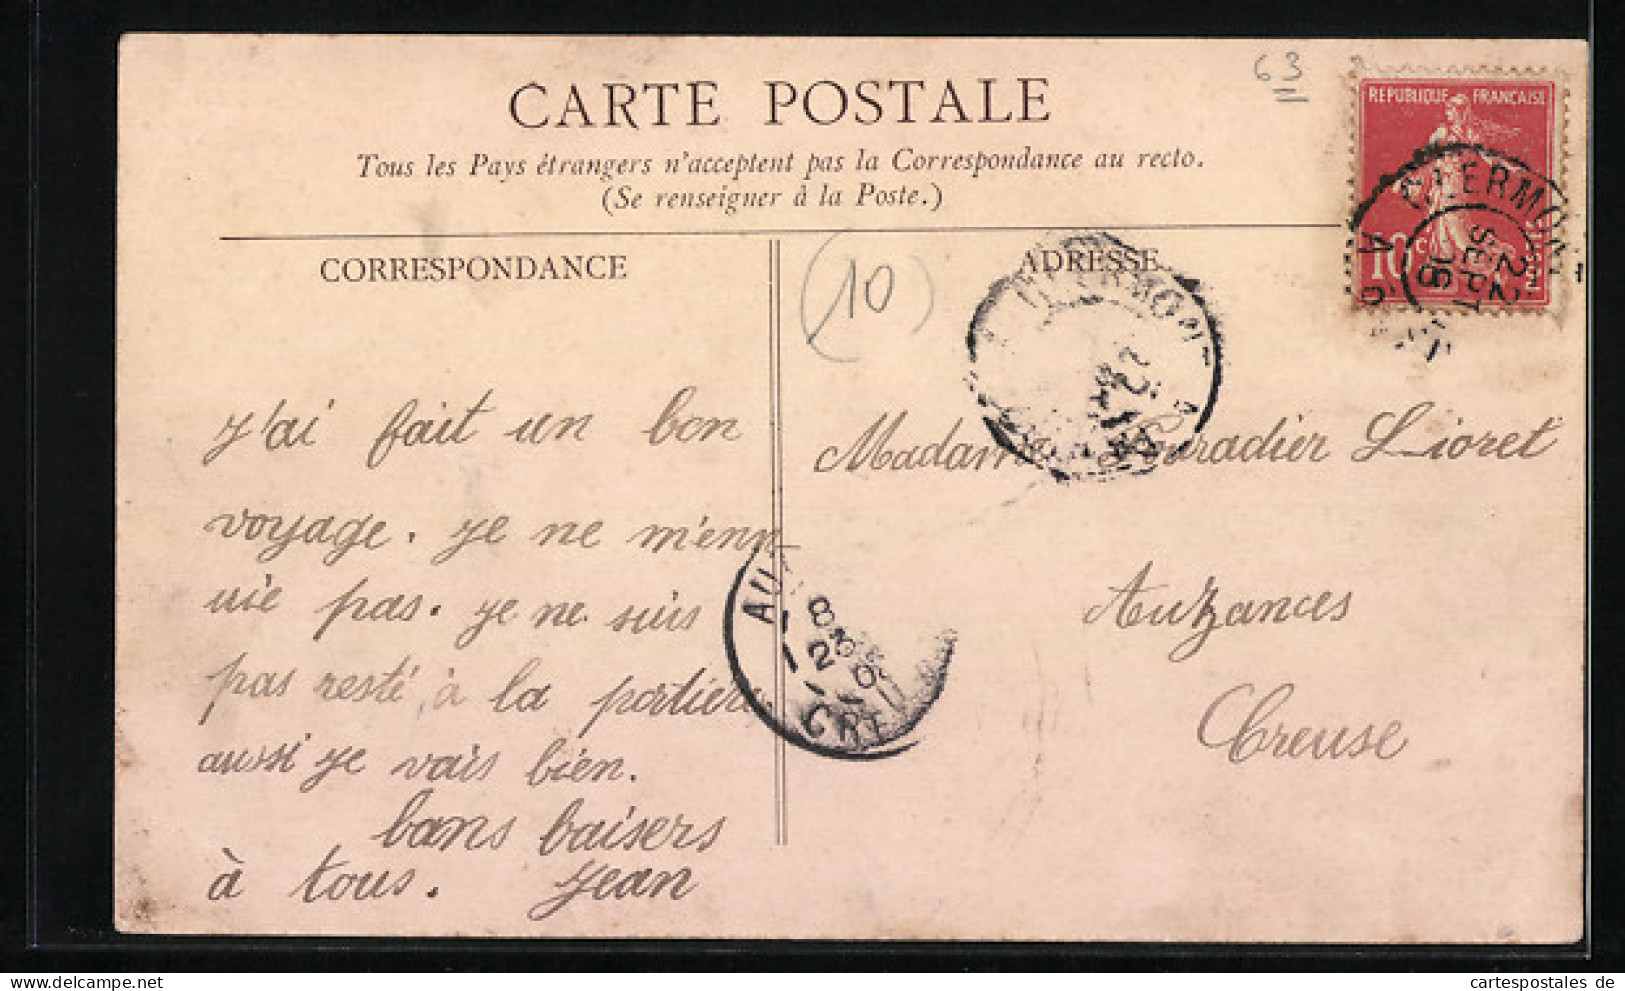 CARTE POSTALE
Tous les Pays étrangers n'acceptent pas la Correspondance au recto.
(Se renseigner à la Poste.)
63
REPUBLIQUE FRANÇAISE
10c
CLERMONT
22
SEPT
CORRESPONDANCE
J'ai fait un bon
voyage. Je ne m'enn
uie pas. Je ne suis
pas resté à la portière
aussi je vais bien.
bons baisers
à tous. Jean
(10)
ADRESSE
CLERMON
Madame Lioret
Auzances
Creuse
8
23
CREUSE
cartespostales de